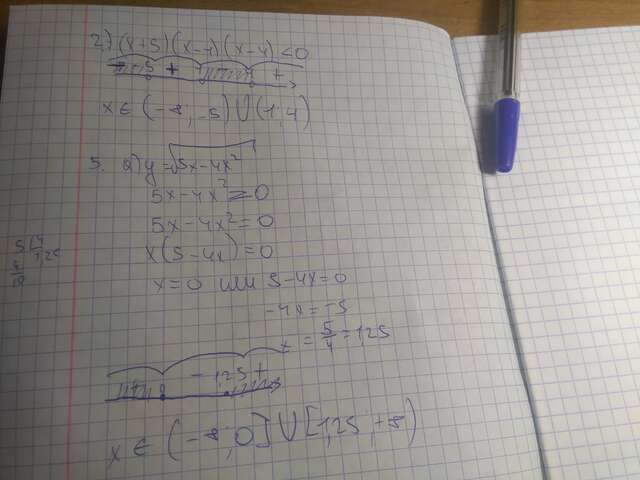 2.) (x+5)(x-1)(x-4)<0
- -5 + +
x∈(-∞; -5)∪(1; 4)
5. a) y=√5x-4x²
5x-4x²≥0
5x-4x²=0
x(5-4x)=0
x=0 или 5-4x=0
-4x=-5
x=5/4=1,25
- 1,25 +
x∈(-∞; 0]∪[1,25; +∞)